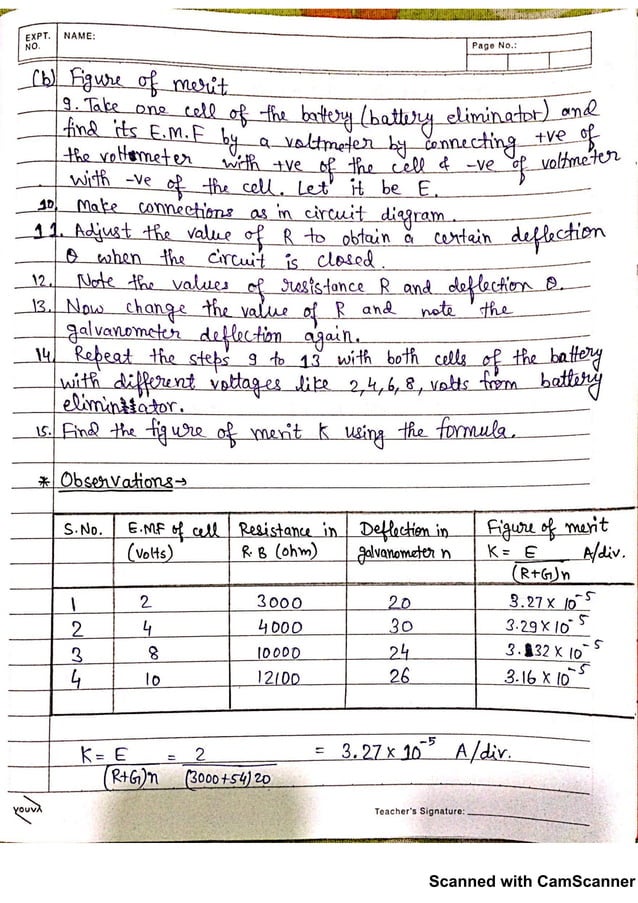 EXPT. NO. NAME: Page No.:
(b) Figure of merit
9. Take one cell of the battery (battery eliminator) and
find its E.M.F by a voltmeter by connecting +ve of
the voltmeter with +ve of the cell & -ve of voltmeter
with -ve of the cell. Let it be E.
10. Make connections as in circuit diagram.
11. Adjust the value of R to obtain a certain deflection
θ when the circuit is closed.
12. Note the values of resistance R and deflection θ.
13. Now change the value of R and note the
galvanometer deflection again.
14. Repeat the steps 9 to 13 with both cells of the battery
with different voltages like 2,4,6,8, volts from battery
eliminator.
15. Find the figure of merit K using the formula.
* Observations→
S.No. E.MF of cell (volts) Resistance in R.B (ohm) Deflection in galvanometer n Figure of merit K = E/(R+G)n A/div.
1 2 3000 20 3.27 x 10⁻⁵
2 4 4000 30 3.29 x 10⁻⁵
3 8 10000 24 3.32 x 10⁻⁵
4 10 12100 26 3.16 x 10⁻⁵
K = E/(R+G)n = 2/(3000+54)20 = 3.27 x 10⁻⁵ A/div.
youva Teacher's Signature:
Scanned with CamScanner